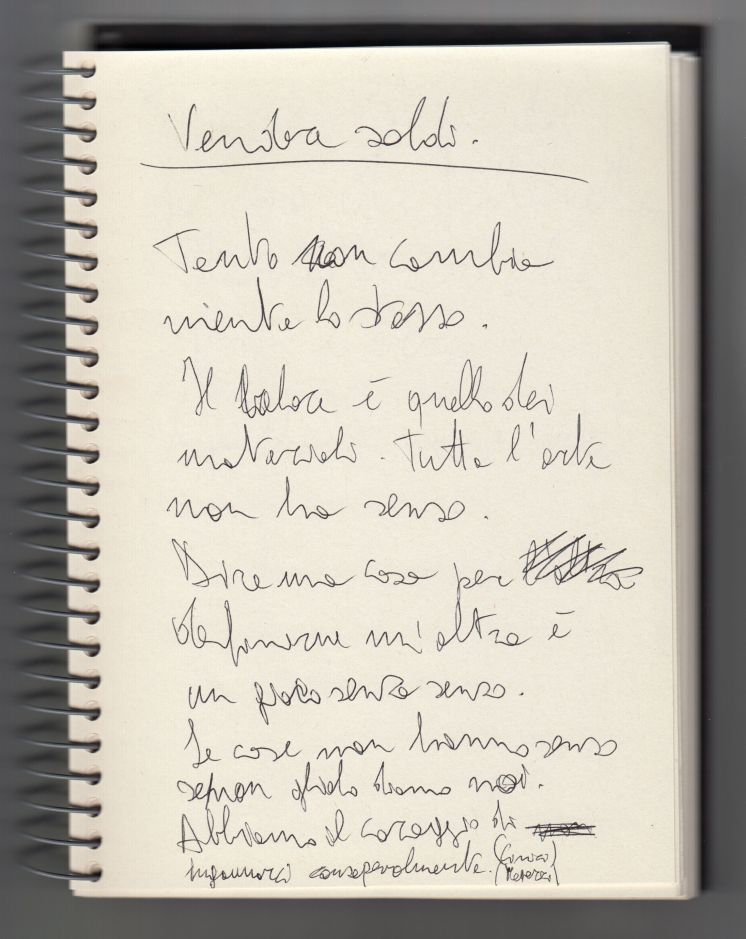 Vendra soldi.
Tento non cambia
niente lo stesso.
Il valore è quello dei
materiali. Tutta l'arte
non ha senso.
Dire una cosa per
definirne un'altra è
un gioco senza senso.
Le cose non hanno senso
se non glielo diamo noi.
Abbiamo il coraggio di
ingannarci consapevolmente.